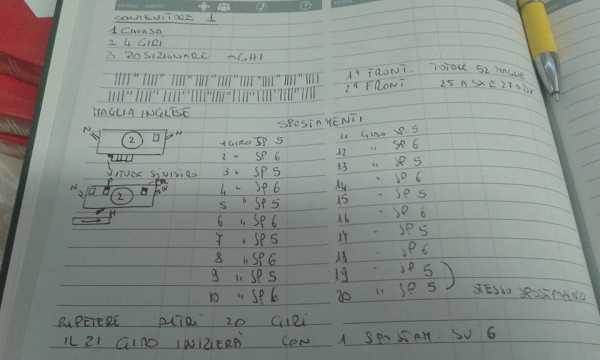 CONTENITORE 1
1 CHIUSA
2 4 GIRI
3 POSIZIONARE AGHI
1ª FRONT. TOTALE 52 MAGLIE
2ª FRONT 25 A SX E 27 A DX
MAGLIA INGLESE
SPOSTAMENTI
1 GIRO SP 5
2 " SP 6
3 " SP 5
4 " SP 6
5 " SP 5
6 " SP 6
7 " SP 5
8 " SP 6
9 " SP 5
10 " SP 6
11 GIRO SP 5
12 " SP 6
13 " SP 5
14 " SP 6
15 " SP 5
16 " SP 6
17 " SP 5
18 " SP 6
19 " SP 5
20 " SP 5
STESSO SPOSTAMENTO
2
2
RIPETERE ALTRI 20 GIRI
IL 21 GIRO INIZIERÀ CON 1 SPOSTAM. SU 6